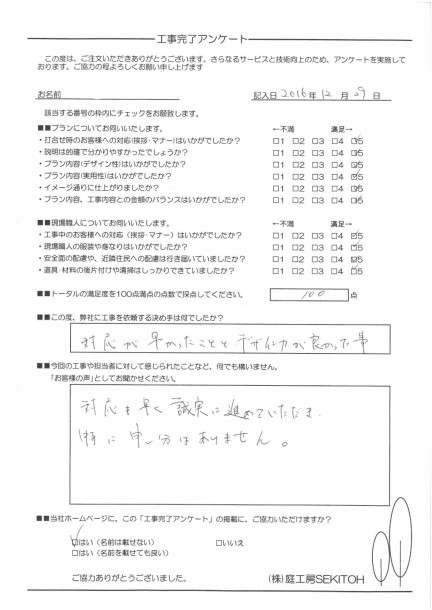 工事完了アンケート
この度は、ご注文いただきありがとうございます。さらなるサービスと技術向上のため、アンケートを実施して
おります。ご協力の程よろしくお願い申し上げます
お名前 記入日 2016年 12月 29日
該当する番号の枠内にチェックをお願致します。
■■プランについてお伺いいたします。 ←不満 満足→
・打合せ時のお客様への対応(挨拶・マナー)はいかがでしたか? □1 □2 □3 □4 ☑5
・説明は的確で分かりやすかったでしょうか? □1 □2 □3 □4 ☑5
・プラン内容(デザイン性)はいかがでしたか? □1 □2 □3 □4 ☑5
・プラン内容(実用性)はいかがでしたか? □1 □2 □3 □4 ☑5
・イメージ通りに仕上がりましたか? □1 □2 □3 □4 ☑5
・プラン内容、工事内容との金額のバランスはいかがでしたか? □1 □2 □3 □4 ☑5
■■現場職人についてお伺いいたします。 ←不満 満足→
・工事中のお客様への対応(挨拶・マナー)はいかがでしたか? □1 □2 □3 □4 ☑5
・現場職人の服装や身なりはいかがでしたか? □1 □2 □3 □4 ☑5
・安全面の配慮や、近隣住民への配慮は行き届いていましたか? □1 □2 □3 □4 ☑5
・道具・材料の後片付けや清掃はしっかりできていましたか? □1 □2 □3 □4 ☑5
■■トータルの満足度を100点満点の点数で採点してください。 100 点
■■この度、弊社に工事を依頼する決め手は何でしたか?
対応が早かったこととデザイン力が良かった事
■■今回の工事や担当者に対して感じられたことなど、何でも構いません。
「お客様の声」としてお聞かせください。
対応も早く誠実に進めていただき
特に申し分はありません。
■■当社ホームページに、この「工事完了アンケート」の掲載に、ご協力いただけますか?
☑はい(名前は載せない) □いいえ
□はい(名前を載せても良い)
ご協力ありがとうございました。
(株)庭工房SEKITOH